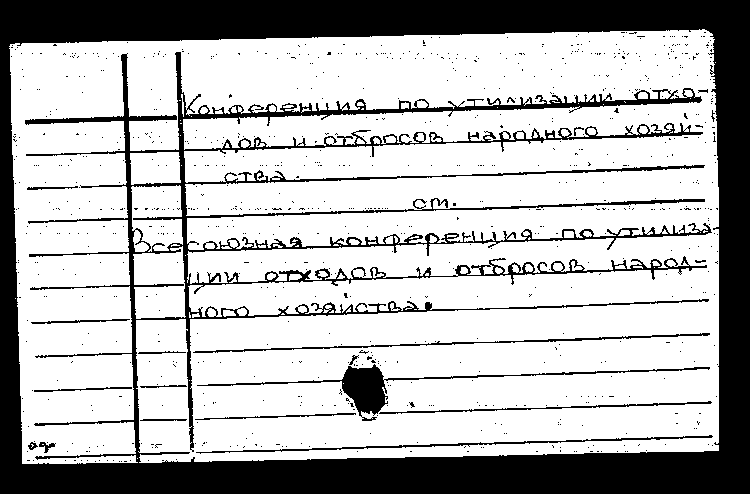 Конференция по утилизации отхо-
дов и отбросов народного хозяй-
ства.
см.
Всесоюзная конференция по утилиза-
ции отходов и отбросов народ-
ного хозяйства.